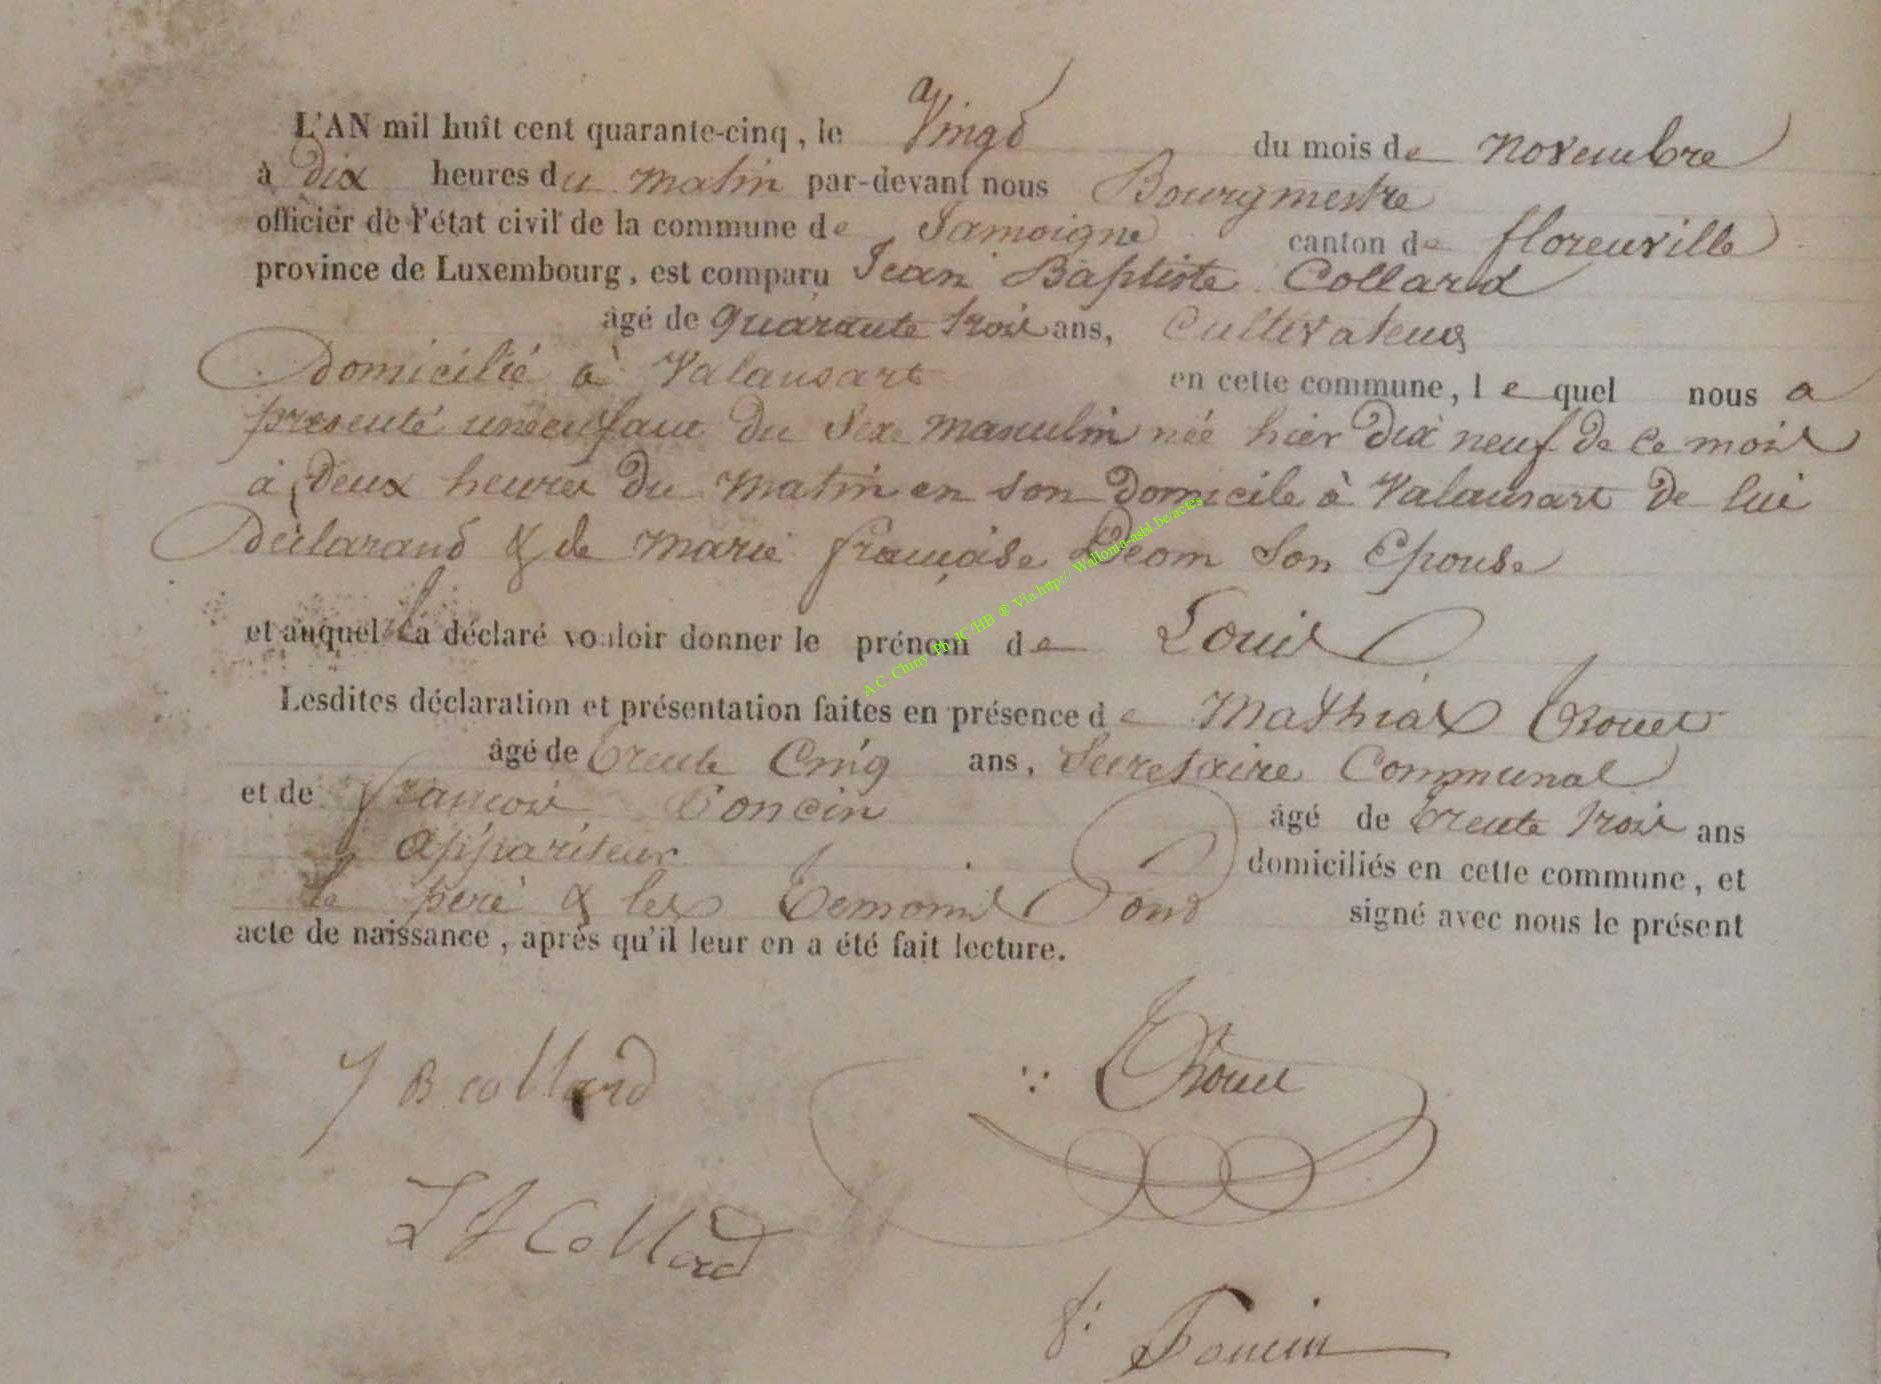 L'AN mil huit cent quarante-cinq, le Vingt du mois de novembre
à Dix heures du matin par-devant nous Bourgmestre
officier de l'état civil de la commune de Jamoigne canton de florenville
province de Luxembourg, est comparu Jean Baptiste Collard
âgé de quarante trois ans, Cultivateur
Domicilié à Valansart en cette commune, lequel nous a
presenté un enfant du Sexe masculin née hier Dix neuf de ce mois
à Deux heures du matin en son Domicile à Valansart de lui
Déclarand & de marie françoise Deom Son Epouse
et auquel a déclaré vouloir donner le prénom de Louis
Lesdites déclaration et présentation faites en présence de Mathias
âgé de trente Cinq ans, Secretaire Communal
et de françois Poncin âgé de trente trois ans
appariteur domiciliés en cette commune, et
le pere & les temoins Ont signé avec nous le présent
acte de naissance, après qu'il leur en a été fait lecture.
J B collard
L J Collard
f: Poncin
A.C. Chiny Ph JC/HB @ Via http:// Wallonia-asbl.be/actes